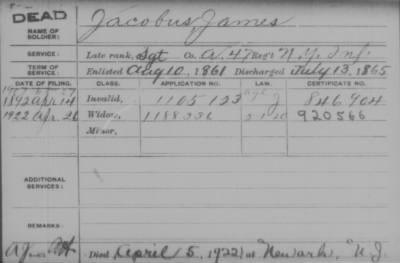 DEAD
NAME OF SOLDIER: Jacobus, James
SERVICE: Late rank, Sgt Co. A, 47 Reg't N.Y. Inf
TERM OF SERVICE: Enlisted Aug 10, 1861 Discharged July 13, 1865
DATE OF FILING. CLASS. APPLICATION NO. LAW. CERTIFICATE NO.
1892 Apr 14 Invalid, 1105123 846904
1922 Apr. 26 Widow, 1188236 920566
Minor,
ADDITIONAL SERVICES:
REMARKS:
Died April 5, 1922, at Newark, N.J.